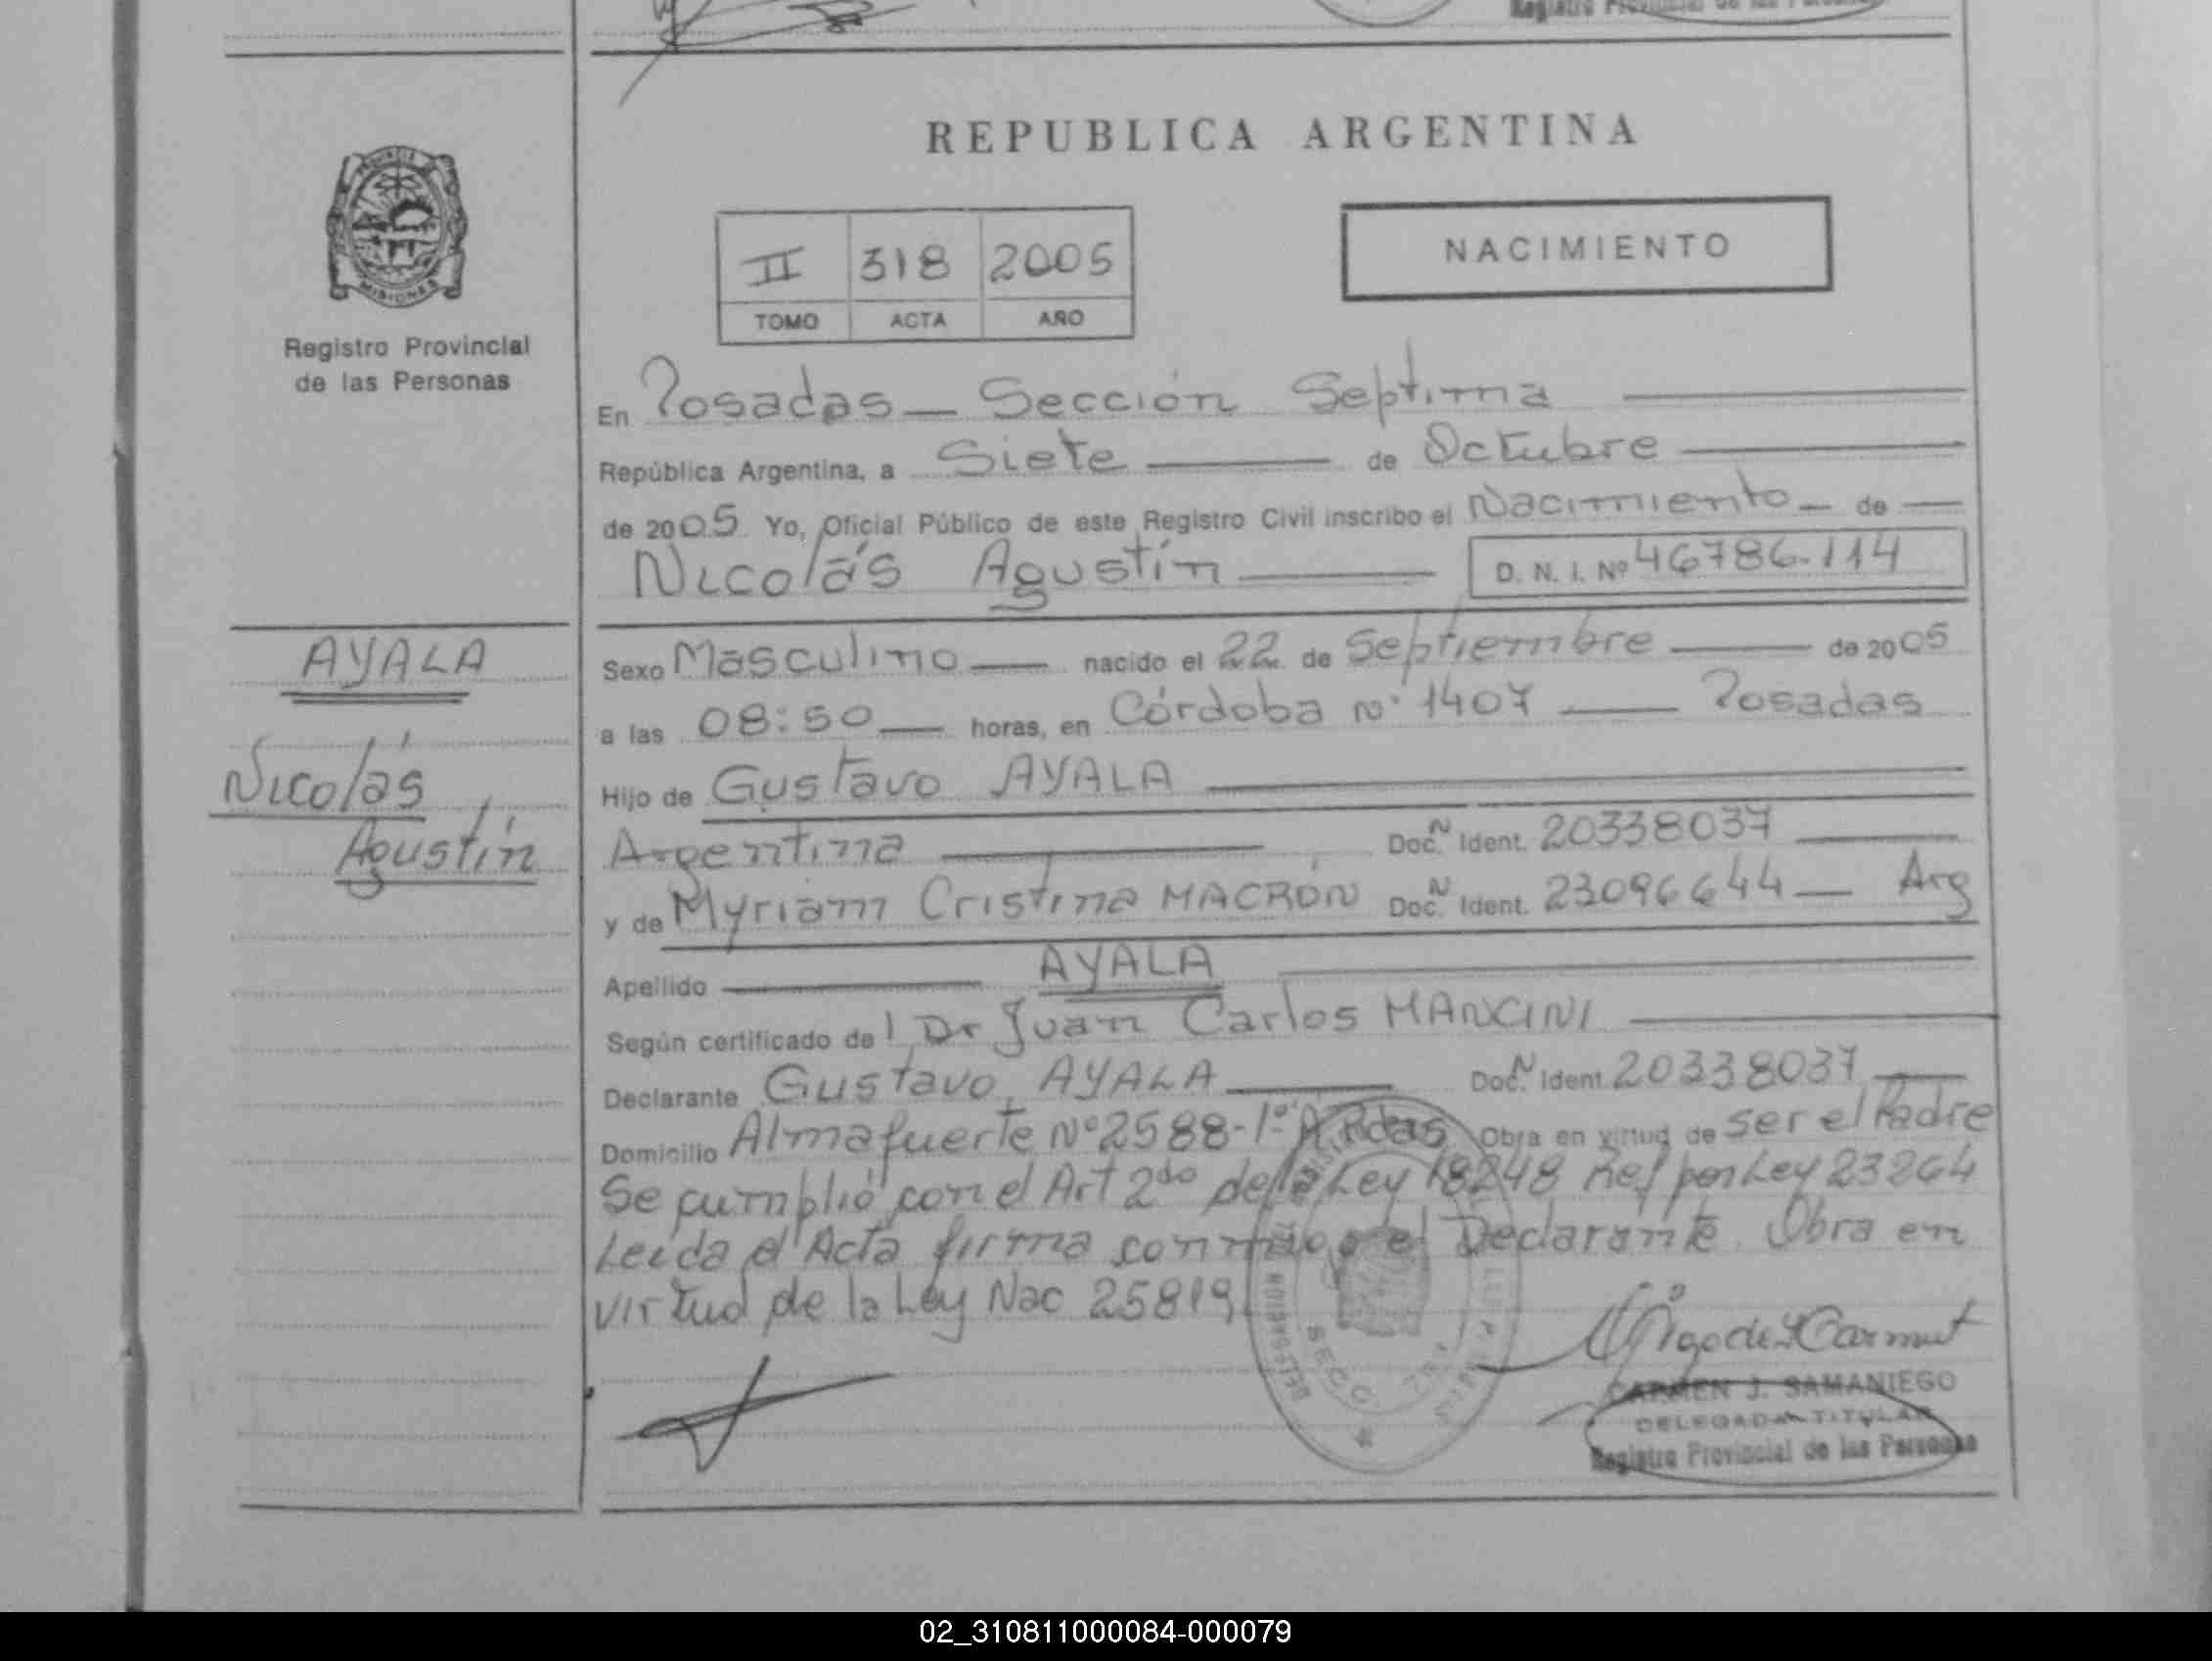 Registro Provincial de las Personas
REPUBLICA ARGENTINA
MISIONES
Registro Provincial
de las Personas
II 318 2005
TOMO ACTA AÑO
NACIMIENTO
En Posadas — Sección Septima
República Argentina, a Siete — de Octubre
de 2005 Yo, Oficial Público de este Registro Civil inscribo el Nacimiento — de
Nicolás Agustín — D. N. I. Nº 46786-114
AYALA
Nicolás
Agustín
Sexo Masculino — nacido el 22 de Septiembre — de 2005
a las 08:50 — horas, en Córdoba nº 1407 — Posadas
Hijo de Gustavo AYALA
Argentina — Doc. N Ident. 20338037
y de Myriam Cristina MACRÓN Doc. N Ident. 23096644 — Arg
Apellido — AYALA
Según certificado del Dr Juan Carlos MANCINI
Declarante Gustavo AYALA — Doc. N Ident. 20338037
Domicilio Almafuerte Nº 2588-1º A Pdas Obra en virtud de ser el Padre
Se cumplió con el Art 2do de la Ley 18248 Ref por Ley 23264
Leída el Acta firma conmigo el Declarante. Obra en
virtud de la Ley Nac 25819
CARMEN J. SAMANIEGO
DELEGADA TITULAR
Registro Provincial de las Personas
02_310811000084-000079